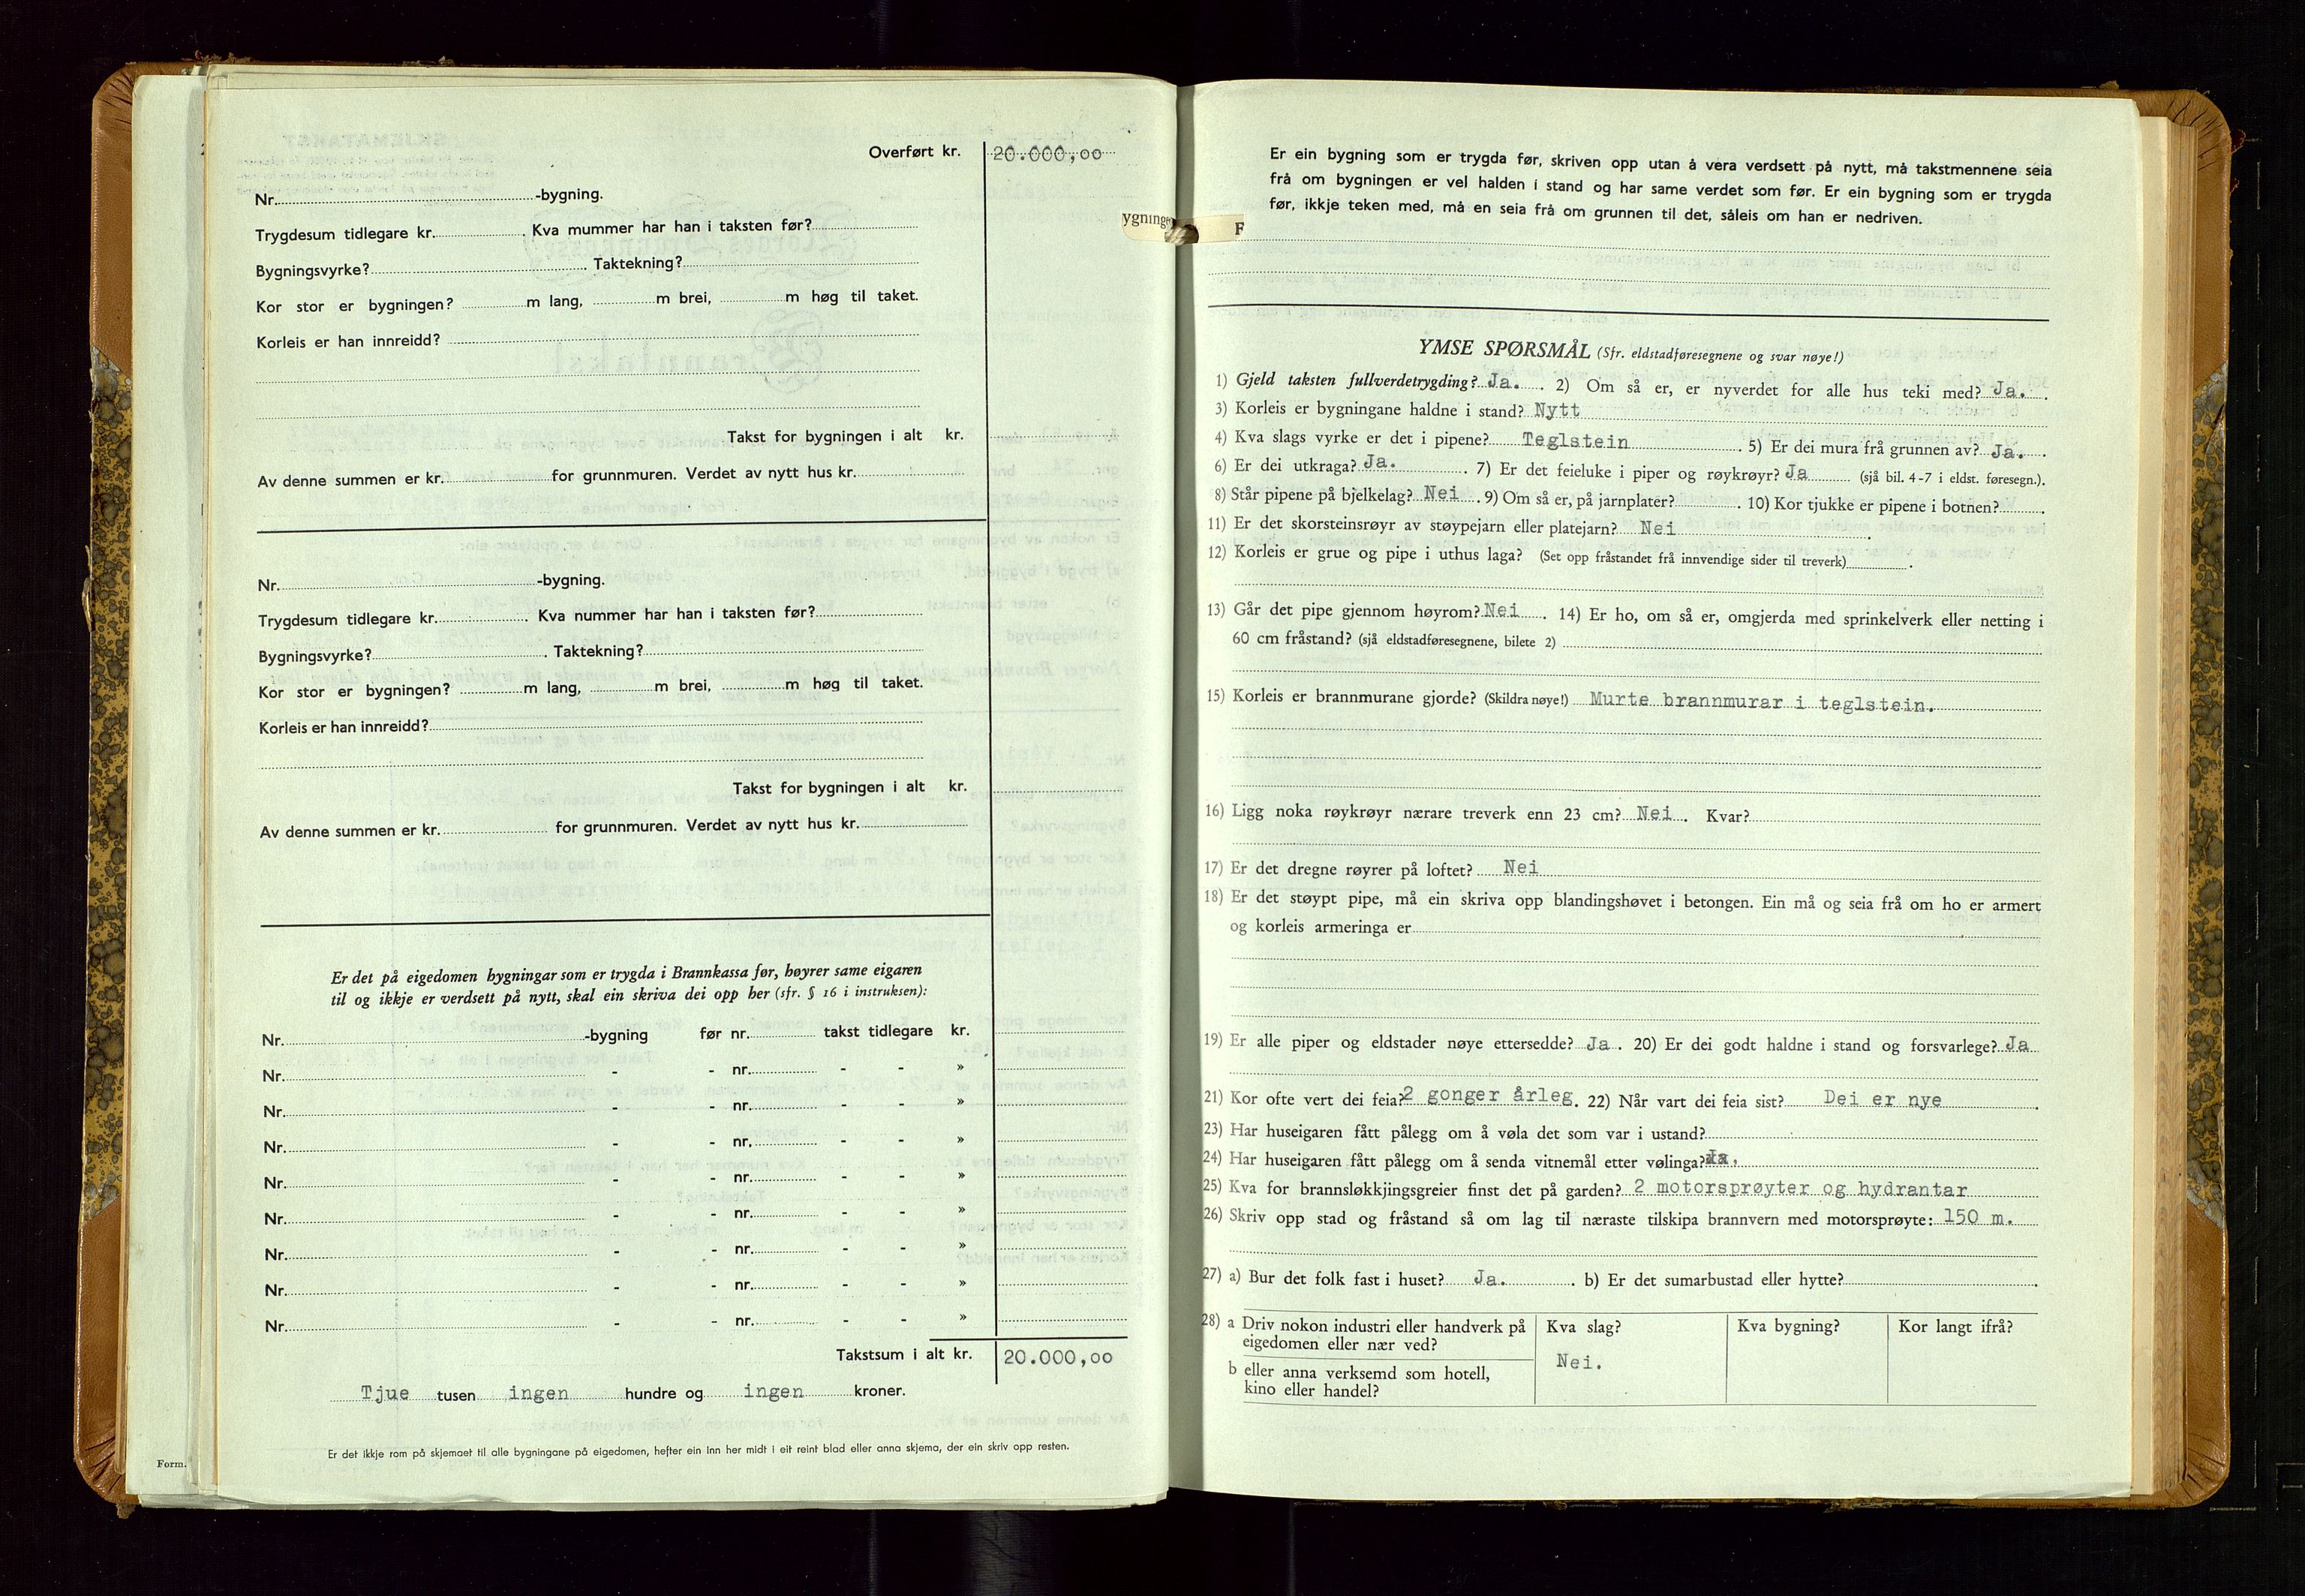 Overført kr. 20.000,00
Nr. -bygning.
Trygdesum tidlegare kr. . Kva mummer har han i taksten før?
Bygningsvyrke? . Taktekning?
Kor stor er bygningen? m lang, m brei, m høg til taket.
Korleis er han innreidd?
Takst for bygningen i alt kr.
Av denne summen er kr. for grunnmuren. Verdet av nytt hus kr.
Nr. -bygning.
Trygdesum tidlegare kr. . Kva nummer har han i taksten før?
Bygningsvyrke? . Taktekning?
Kor stor er bygningen? m lang, m brei, m høg til taket.
Korleis er han innreidd?
Takst for bygningen i alt kr.
Av denne summen er kr. for grunnmuren. Verdet av nytt hus kr.
Er det på eigedomen bygningar som er trygda i Brannkassa før, høyrer same eigaren
til og ikkje er verdsett på nytt, skal ein skriva dei opp her (sfr. § 16 i instruksen):
Nr. -bygning før nr. takst tidlegare kr.
Nr. - - nr. - - »
Nr. - - nr. - - »
Nr. - - nr. - - »
Nr. - - nr. - - »
Nr. - - nr. - - »
Nr. - - nr. - - »
Nr. - - nr. - - »
Nr. - - nr. - - »
Takstsum i alt kr. 20.000,00
Tjue tusen ingen hundre og ingen kroner.
Er det ikkje rom på skjemaet til alle bygningane på eigedomen, hefter ein inn her midt i eit reint blad eller anna skjema, der ein skriv opp resten.
Form.
ygninge
F
Er ein bygning som er trygda før, skriven opp utan å vera verdsett på nytt, må takstmennene seia
frå om bygningen er vel halden i stand og har same verdet som før. Er ein bygning som er trygda
før, ikkje teken med, må en seia frå om grunnen til det, såleis om han er nedriven.
YMSE SPØRSMÅL (Sfr. eldstadføresegnene og svar nøye!)
1) Gjeld taksten fullverdetrygding? Ja. . 2) Om så er, er nyverdet for alle hus teki med? Ja. .
3) Korleis er bygningane haldne i stand? Nytt
4) Kva slags vyrke er det i pipene? Teglstein . 5) Er dei mura frå grunnen av? Ja. .
6) Er dei utkraga? Ja. . 7) Er det feieluke i piper og røykrøyr? Ja (sjå bil. 4-7 i eldst. føresegn.).
8) Står pipene på bjelkelag? Nei . 9) Om så er, på jarnplater? . 10) Kor tjukke er pipene i botnen? .
11) Er det skorsteinsrøyr av støypejarn eller platejarn? Nei .
12) Korleis er grue og pipe i uthus laga? (Set opp fråstandet frå innvendige sider til treverk) .
13) Går det pipe gjennom høyrom? Nei . 14) Er ho, om så er, omgjerda med sprinkelverk eller netting i
60 cm fråstand? (sjå eldstadføresegnene, bilete 2)
15) Korleis er brannmurane gjorde? (Skildra nøye!) Murte brannmurar i teglstein.
16) Ligg noka røykrøyr nærare treverk enn 23 cm? Nei . Kvar?
17) Er det dregne røyrer på loftet? Nei
18) Er det støypt pipe, må ein skriva opp blandingshøvet i betongen. Ein må og seia frå om ho er armert
og korleis armeringa er
19) Er alle piper og eldstader nøye ettersedde? Ja . 20) Er dei godt haldne i stand og forsvarlege? Ja
21) Kor ofte vert dei feia? 2 gonger årleg . 22) Når vart dei feia sist? Dei er nye .
23) Har huseigaren fått pålegg om å vøla det som var i ustand?
24) Har huseigaren fått pålegg om å senda vitnemål etter vølinga? Ja.
25) Kva for brannsløkkjingsgreier finst det på garden? 2 motorsprøyter og hydrantar
26) Skriv opp stad og fråstand så om lag til næraste tilskipa brannvern med motorsprøyte: 150 m.
27) a) Bur det folk fast i huset? Ja. . b) Er det sumarbustad eller hytte? .
28) a Driv nokon industri eller handverk på Kva slag? Kva bygning? Kor langt ifrå?
eigedomen eller nær ved?
Nei.
b eller anna verksemd som hotell,
kino eller handel?